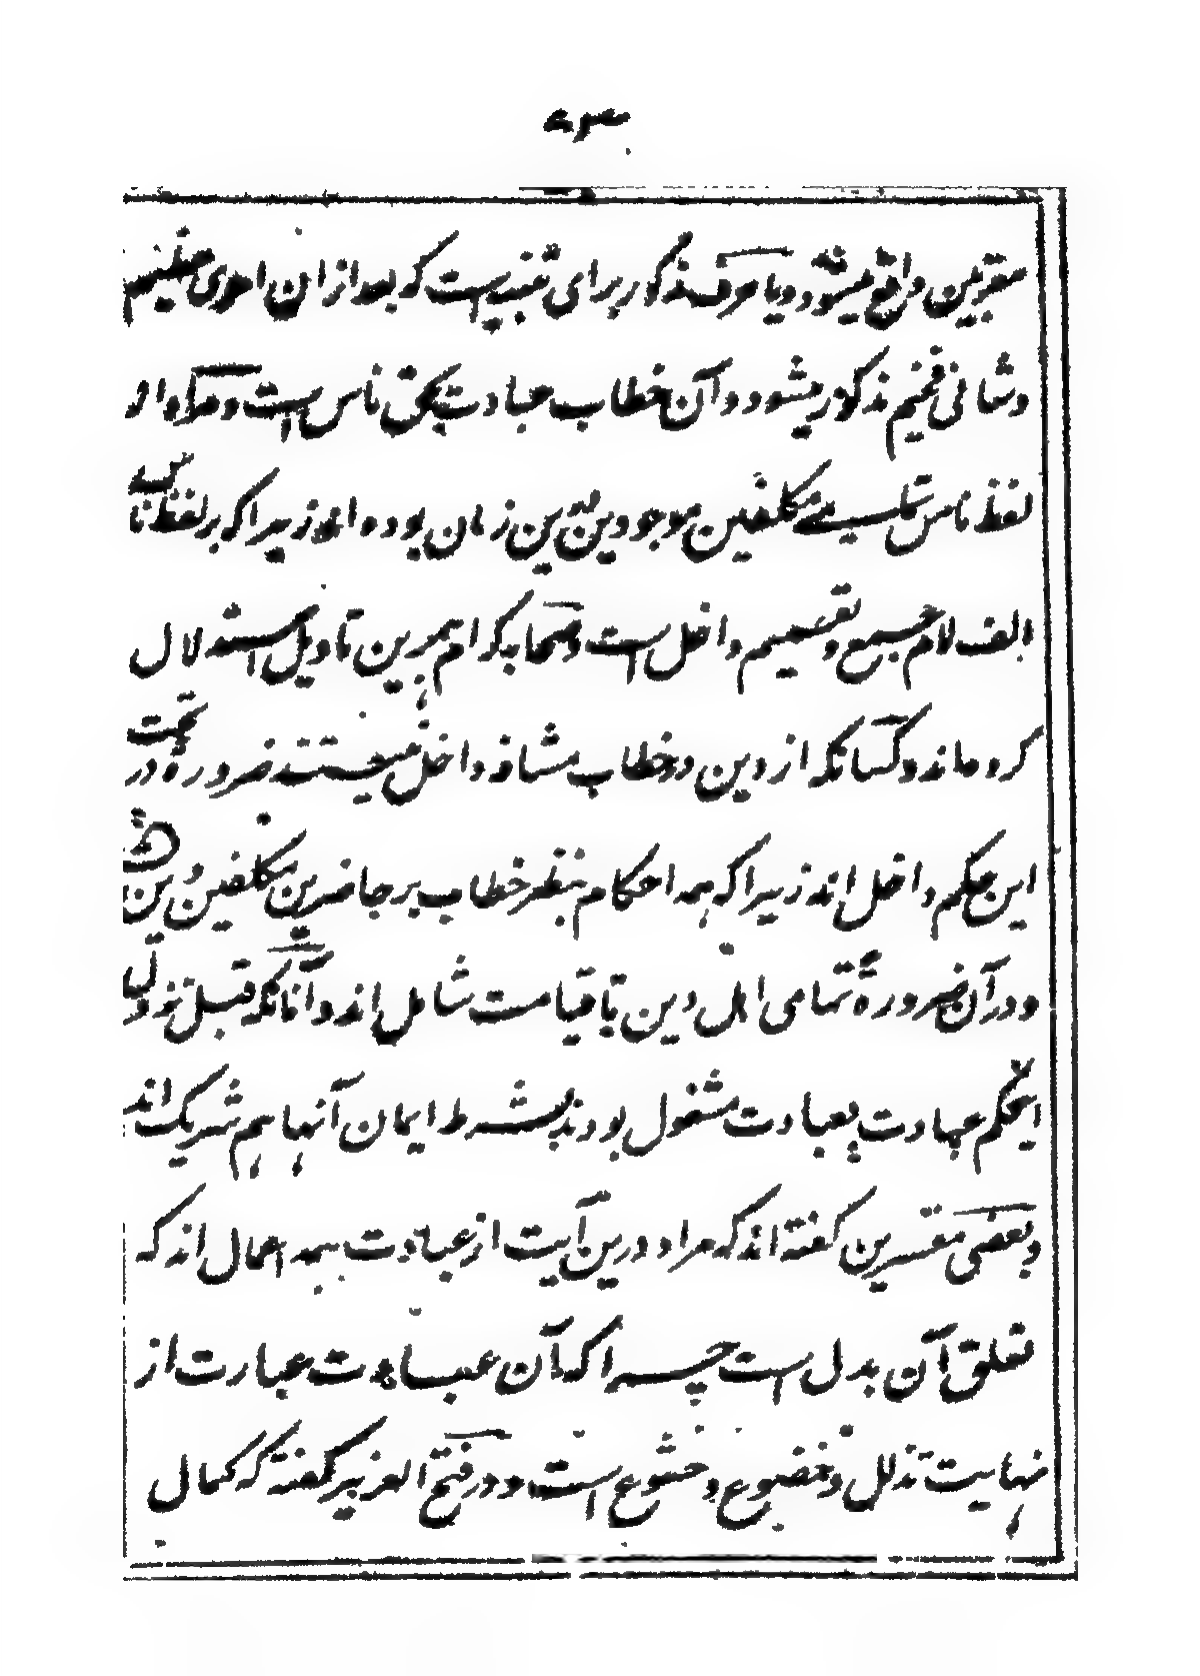 مقربین واقع میشود و یا حرف مذکور برای تنبیه است که بعد ازان امری عظیم
و شانی فخیم مذکور میشود و آن خطاب عبادت بحق ناس است و مراد از
لفظ ناس تکلیفی مکلفین موجودین این زمان بوده اند زیرا که بر لفظ ناس
الف لام جمع و تقسیم داخل است و صحابه کرام بهمرین تاویل استدلال
کرده‌اند و کسانیکه از دین و خطاب مشافه داخل نیستند ضرورة در تحت
این حکم داخل اند زیرا که همه احکام بنظر خطاب بر حاضرین مکلفین این
و در آن ضرورة تمامی اهل دین تا قیامت شامل اند و آنانکه قبل نزول
اینحکم عبادت بعبادت مشغول بودند بشرط ایمان آنها هم شریک اند
و بعضی مفسرین گفته اند که مراد درین آیت از عبادت همه اعمال اند که
تعلق آن بدل است چرا که آن عبادت عبارت از
نهایت تذلل و خضوع و خشوع است و در فتح العزیز گفته که کمال